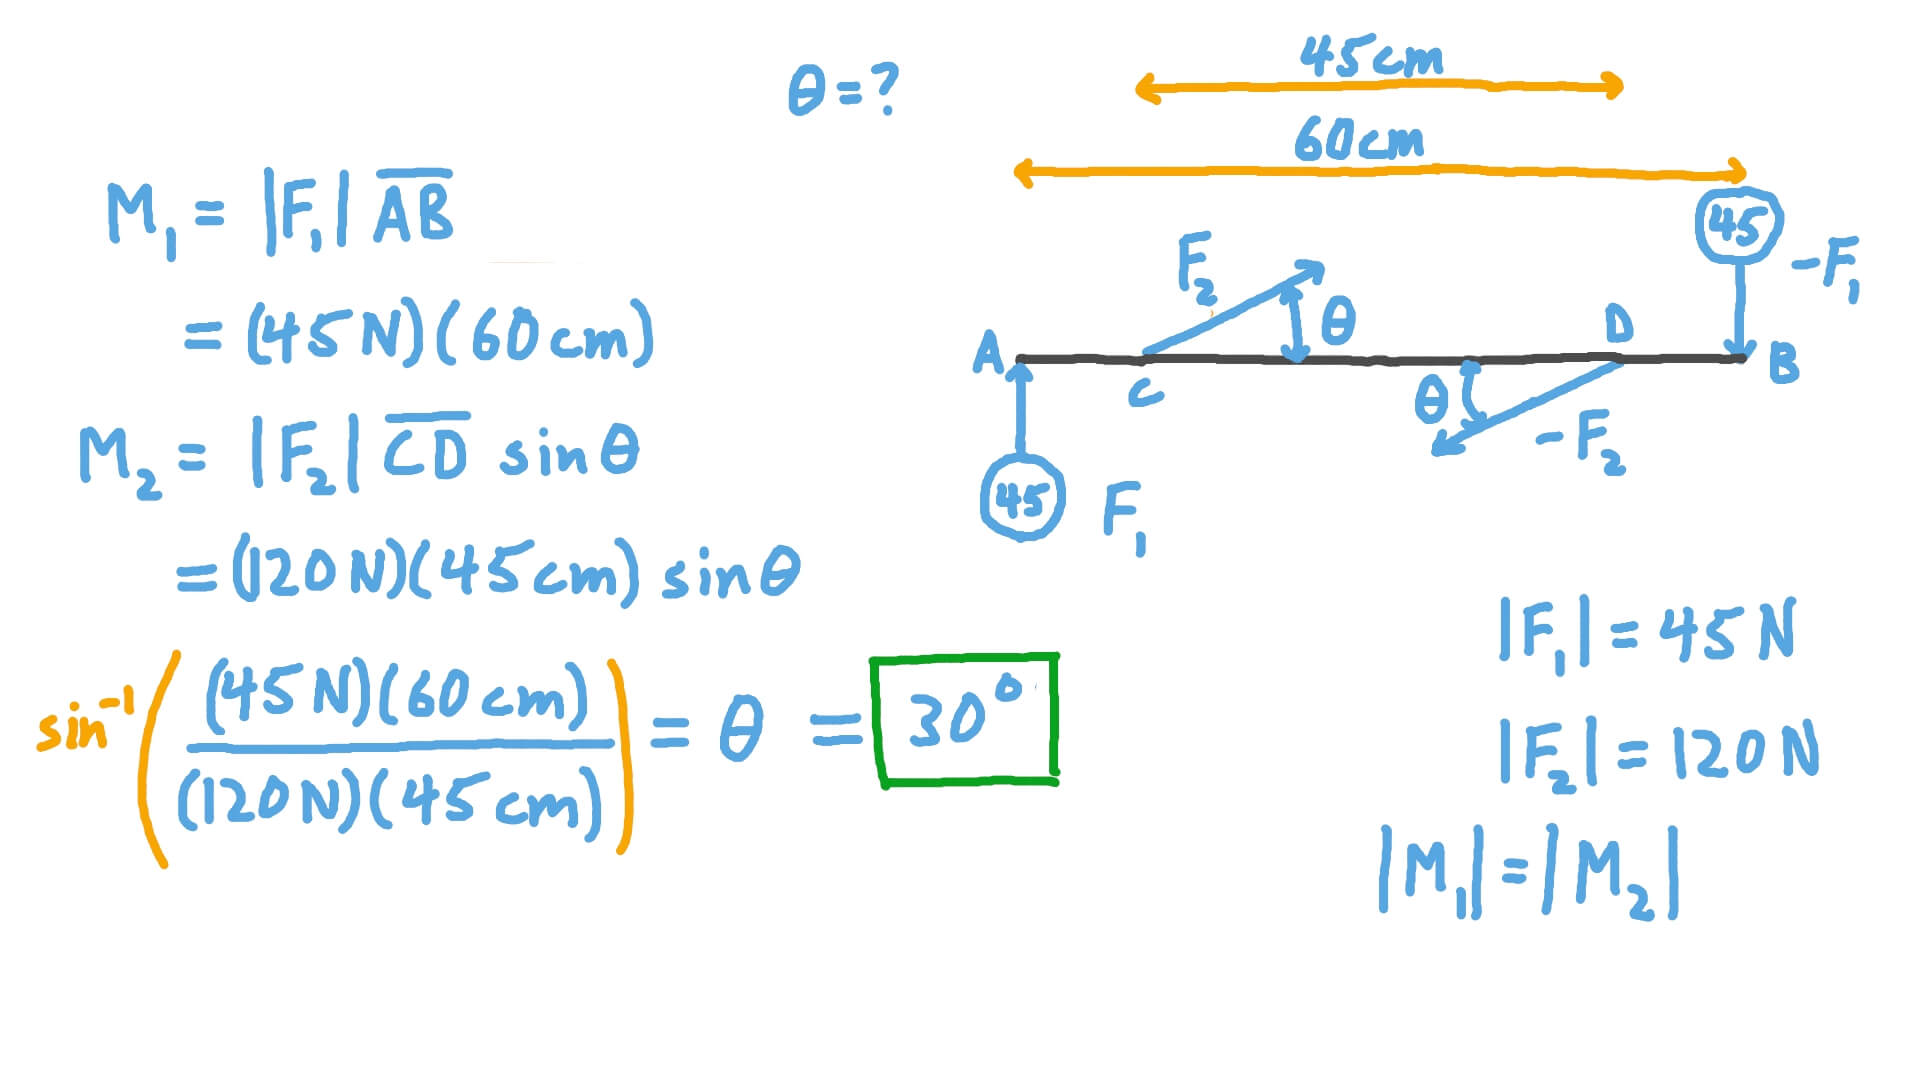 θ=?
45cm
60cm
M₁ = |F₁| A̅B̅
= (45N)(60cm)
M₂ = |F₂| C̅D̅ sinθ
= (120N)(45cm) sinθ
sin⁻¹( (45N)(60cm) / (120N)(45cm) ) = θ = 30°
45
-F₁
F₂
θ
D
A
B
C
θ
-F₂
45
F₁
|F₁| = 45N
|F₂| = 120N
|M₁| = |M₂|